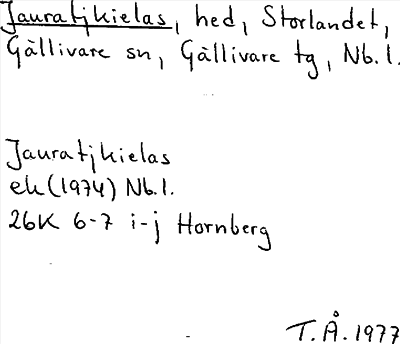 Jauratjkielas, hed, Storlandet,
Gällivare sn, Gällivare tg, Nb.l.
Jauratjkielas
ek (1974) Nb.l.
26K 6-7 i-j Hornberg
T.Å. 1977